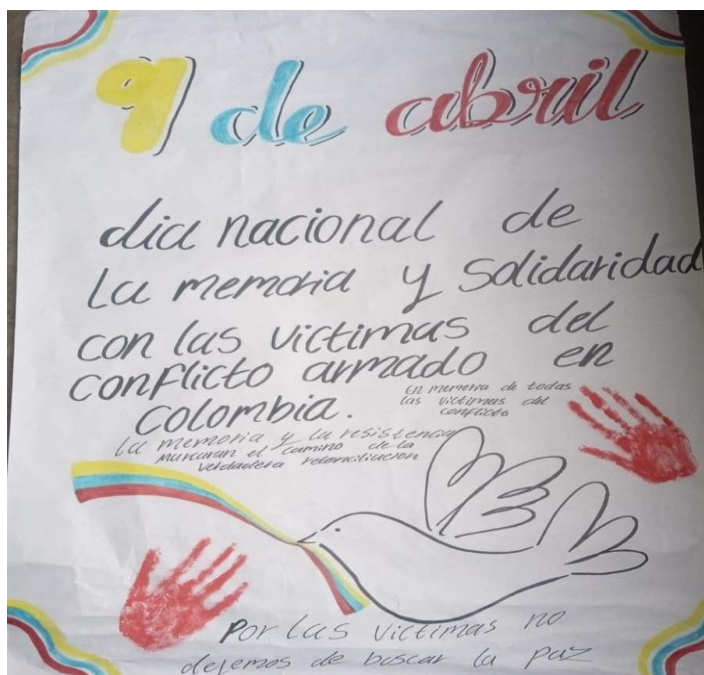 9 de abril
dia nacional de
la memoria y solidaridad
con las victimas del
conflicto armado en
Colombia.
En memoria de todas
las victimas del
conflicto
la memoria y la resistencia
marcaran el camino de la
verdadera reconciliacion
Por las victimas no
dejemos de buscar la paz